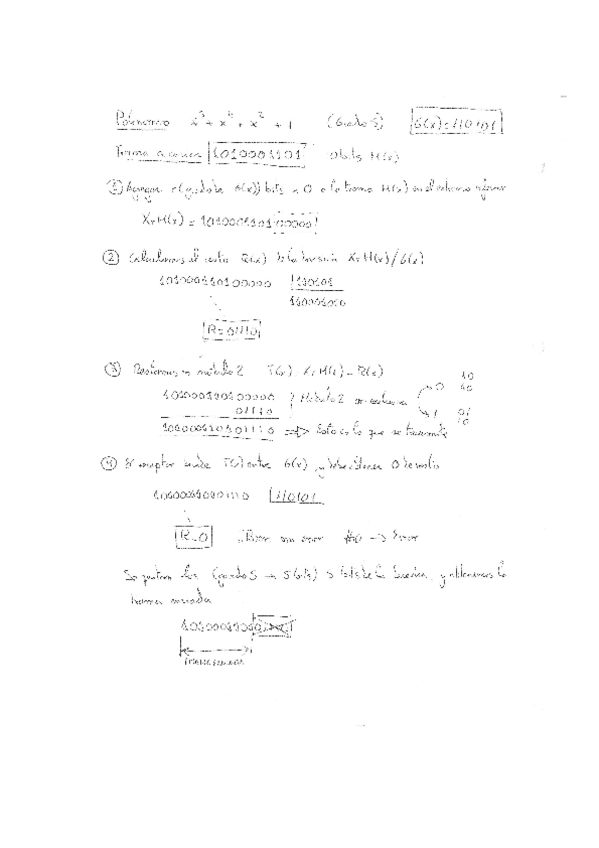 Polinomio x⁵ + x⁴ + x² + 1 (Grado 5) G(x)=110101
Trama a enviar 1010001101 10 bits M(x)
① Agregar r (grado de G(x)) bits a 0 a la trama M(x) en el extremo inferior
XrM(x) = 101000110100000
② Calculamos el resto R(x) de la división XrM(x)/G(x)
101000110100000 110101
R=01110
③ Restamos en módulo 2 T(x) XrM(x)-R(x)
101000110100000 Módulo 2
01110
101000110101110 => Esto es lo que se transmite
④ El receptor divide T(x) entre G(x) y debe obtener 0 de resto
110101
R=0 sin error ≠0 -> Error
Se quitan los (grado 5 -> 5 bits) 5 bits de la derecha y obtenemos la
trama enviada